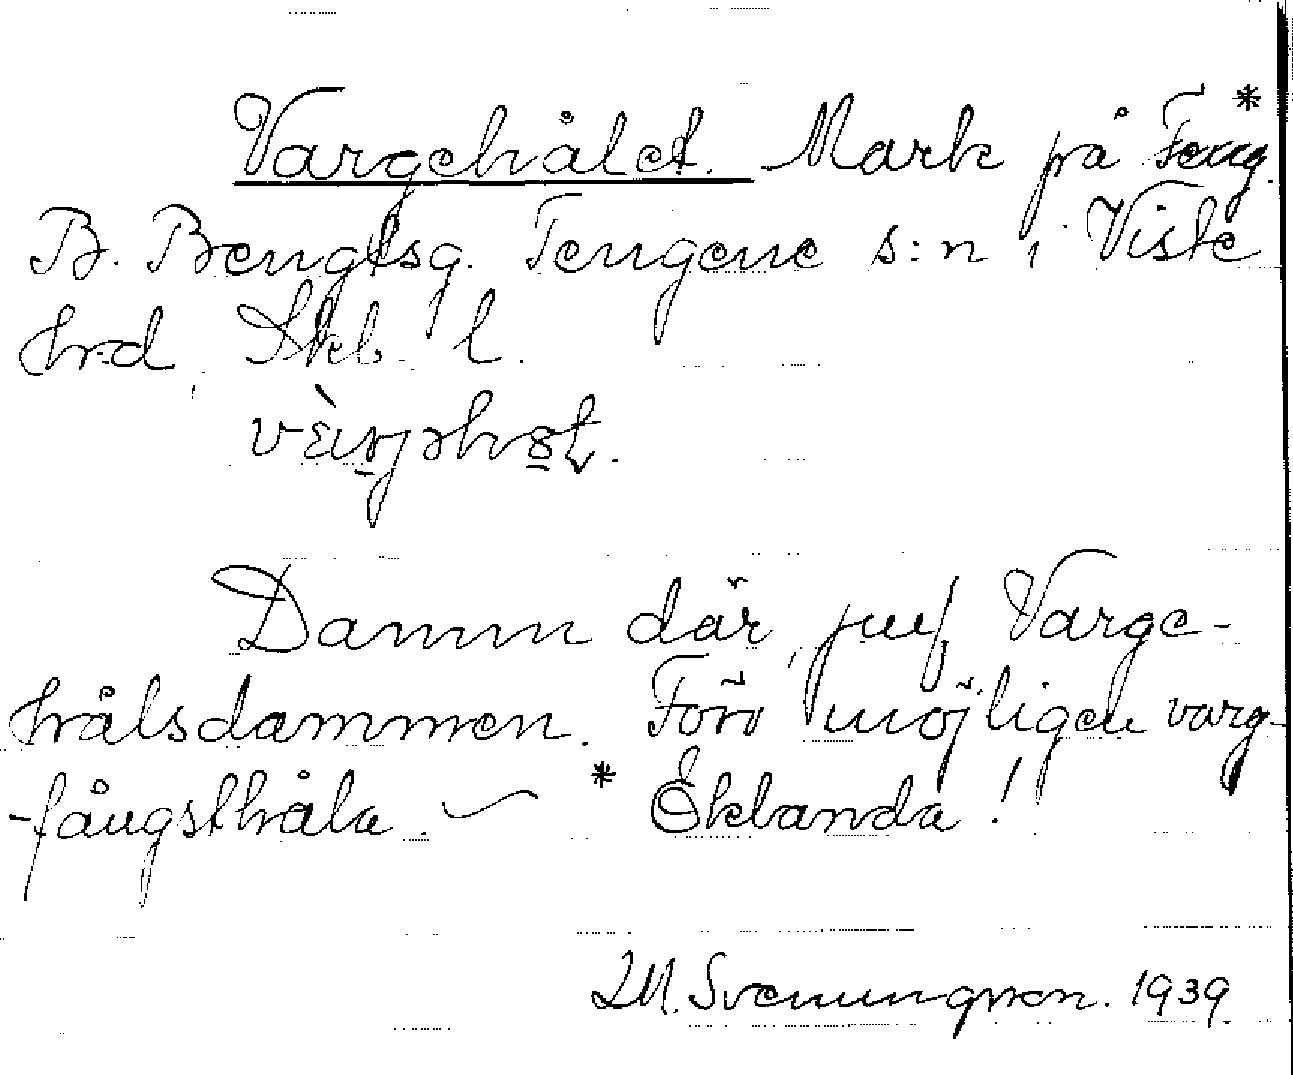 Vargehålet. Mark på Teng.*
B. Bengtsg. Tengene s:n i Viste
hrd, Skb. l.

Damm där, jmf Varge-
hålsdammen. Förr möjligen varg-
-fångsthåla. * Eklanda!
M. Svenungsson. 1939